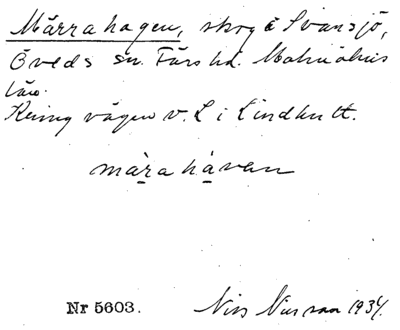 Märrahagen, skog i Svansjö,
Öveds sn. Färs hd. Malmöhus
län.
Kring vägen v. L i Lindhult.
màrahàvan
Nr 5603. Nils Nilsson 1934.